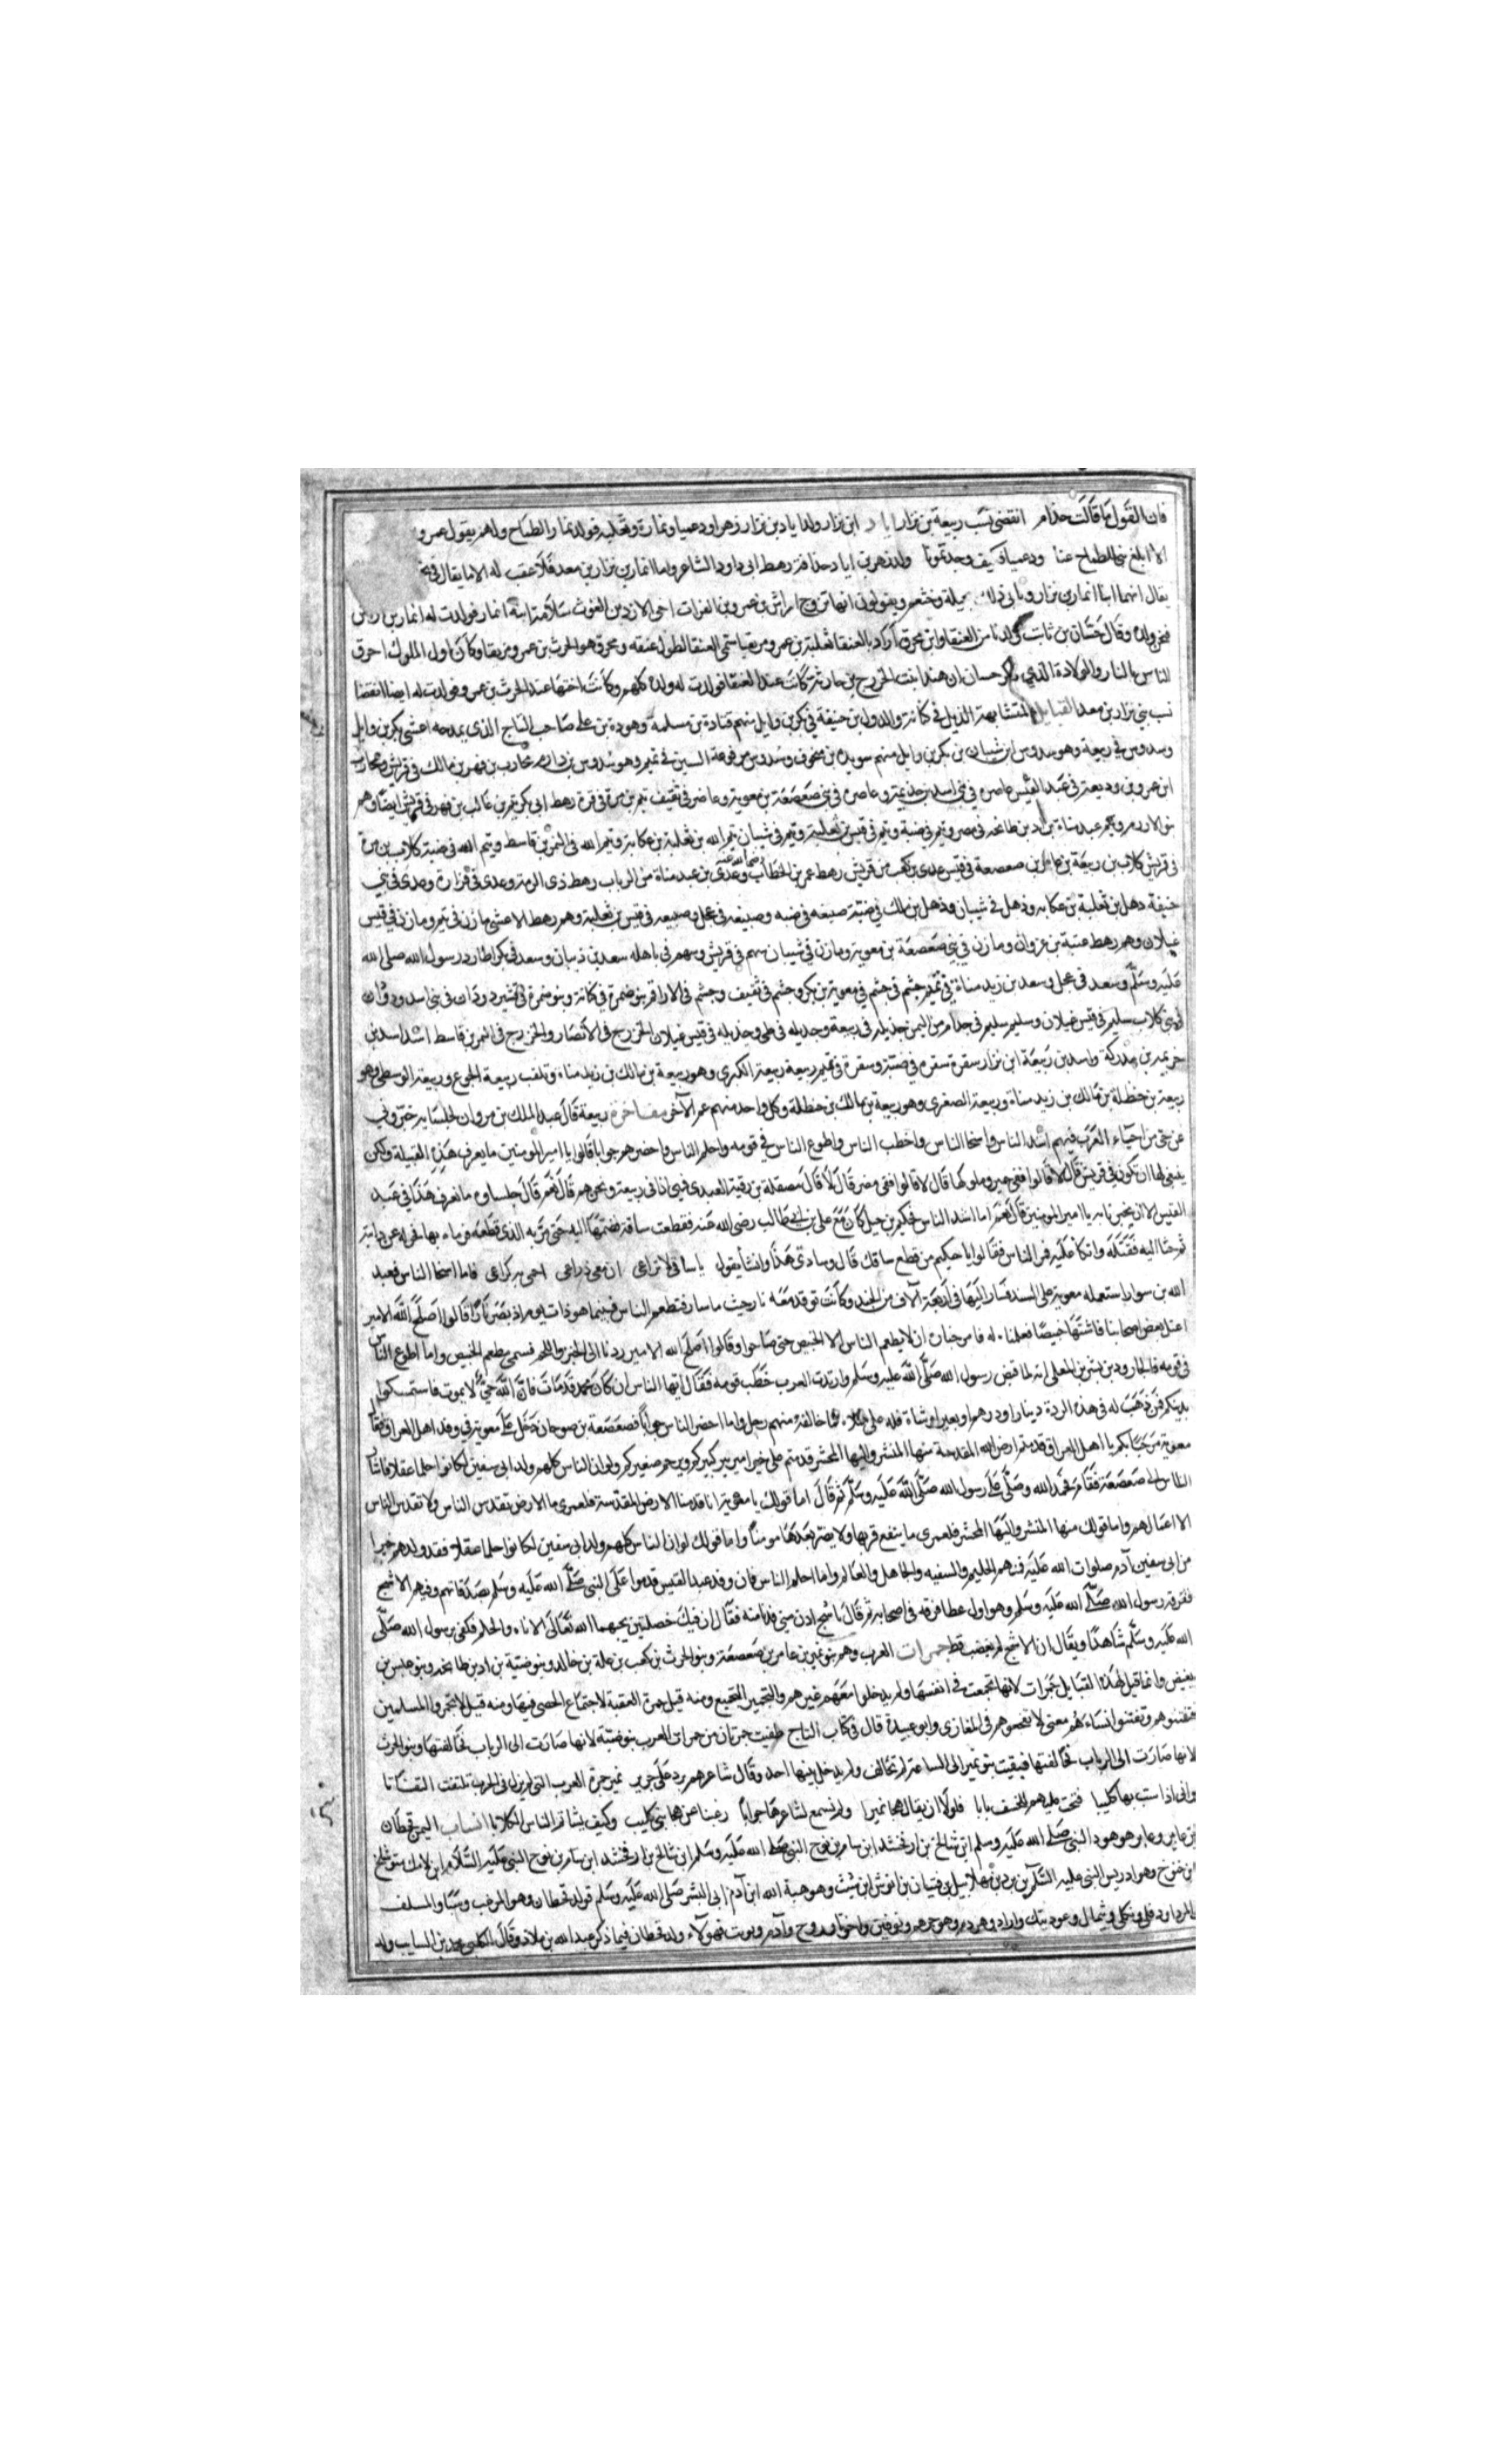 فان القول ما قالت حذام انتقضى نسب ربيعة بن نزار اياد ابن نزار ولد اياد بن نزار زهرا ودعميا ونمارة وثعلبه فولد نمار الطماح ولهم يقول عمرو
الا ابلغ بني الطماح عنا ودعميا فكيف وجدتمونا ولد زهر بن اياد حذافة رهط ابى داود الشاعر واما انمار بن نزار بن معد فلا عقب له الا ما يقال في
يقال انهما ابنا انمار بن نزار وتابى ذلك بجيلة وخثعم ويقولون انما تزوج اراش بن عمرو بن الغوث اخى الازد بن الغوث سلامة ابنة انمار فولدت له انمار بن اراش
فنحن ولده وقال حسان بن ثابت ولدنا بني العنقا وابني محرق اراد بالعنقا ثعلبة بن عمرو مزيقيا سمى العنقا لطول عنقه ومحرق هو الحرث بن عمرو مزيقيا وكان اول الملوك احرق
الناس بالنار والولادة الذي ذكر حسان ان هندا بنت الخزرج بن حارثة كانت عند العنقا فولدت له ولده كلهم وكانت اختها عند الحرث بن عمرو فولدت له ايضا انقضا
نسب بني نزار بن معد القبايل المتشابهة الديل في كنانة والدول بن حنيفة في بكر بن وايل منهم قتادة بن مسلمة وهوذة بن على صاحب التاج الذى يمدحه اعشى بكر بن وايل
وسدوس في ربيعة وهو سدوس ابن شيبان بن بكر بن وايل منهم سويد بن منجوف وسدوس مرفوعة السين في تميم وهو سدوس بن دارم محارب بن فهر بن مالك في قريش ومحارب
ابن عمرو بن وديعة في عبد القيس عاضرة في بنى اسد بن خذيمة وعاضرة في بنى صعصعة بن معوية وعاضرة في ثقيف تيم بن مرة في قرة رهط ابى بكر تيم بن غالب بن فهر في قريش ايضا وهم
بنو الادرم وتيم عبد مناة بن اد بن طابخة في مضر وتيم في ضبة وتيم في قيس بن ثعلبة وتيم في شيبان تيم الله بن ثعلبة بن عكابة وتيم الله في النمر بن قاسط وتيم الله في ضبة كلاب بن مرة
في قريش كلاب بن ربيعة بن عامر بن صعصعة في قيس عدى بن كعب من قريش رهط عمر بن الخطاب رضى الله عنه وعدى بن عبد مناة من الرباب رهط ذى الرمة وعدى في فزارة وعدى في بني
حنيفة دهل بن ثعلبة بن عكابه وذهل في شيبان وذهل بن مالك في ضبة ضبيعه في ضبه وضبيعه في عجل وضبيعه في قيس بن ثعلبة وهم رهط الاعشى مازن في تميم ومازن في قيس
غيلان وهم رهط عتبة بن غزوان ومازن في بني صعصعة بن معوية ومازن في شيبان سهم في قريش وسهم في باهله سعد بن ذبيان وسعد في بكر اظار رسول الله صلى الله
عليه وسلم وسعد في عجل وسعد بن زيد مناة في تميم جشم في جشم في معوية بن بكر وجشم في ثقيف وجشم في الاراقم بنو ضمرة في كنانة وبنو ضمرة في قشير دودان في بنى اسد ودودان
في بني كلاب سليم في قيس غيلان وسليم سليم في جذام من اليمن جديله في ربيعة وجديله في طى وجديله في قيس غيلان الخزرج في الانصار والخزرج في النمر بن قاسط اسد اسد بن
خزيمه بن مدركة واسد بن ربيعة ابن نزار سقرة سقره في ضبة وسقرة في تميم ربيعة ربيعة الكبرى وهو ربيعة بن مالك بن زيد مناه وتلقب ربيعة الجوع وربيعة الوسطى وهو
ربيعة بن حنظلة بن مالك بن زيد مناة وربيعة الصغرى وهو ربيعة بن مالك بن حنظلة وكل واحد منهم عم الآخر مفاخرة ربيعة قال عبد الملك بن مروان لجلسايه خبروني
عن حي من احياء العرب فيهم اشد الناس واسخا الناس واخطب الناس واطوع الناس في قومه واحلم الناس واحضرهم جوابا قالوا يا امير المومنين ما يعرف هذه القبيلة ولكن
ينبغي لها ان تكون في قريش قال لا قالوا ففي حمير وملوكها قال لا قالوا ففي مضر قال لا قال مصقلة بن رقية العبدى فهى اذا في ربيعة ونحن هم قال نعم قال جلساوه ما نعرف هذا في عبد
القيس الا ان يخبرنا به يا امير المومنين قال نعم اما اشد الناس فحكيم بن جبل كان مع علي بن ابى طالب رضى الله عنه فقطعت ساقه فضمها اليه حتى مر به الذى قطعه فرماه بها فجدله عن دابته
ثم حبا اليه فقتله واتكا عليه فمر الناس فقالوا يا حكيم من قطع ساقك قال وسادتي هذا وانشا يقول يا ساق لا تراعى ان معى ذراعى احمى بها كراعى فاما اسخا الناس فعبد
الله بن سوار استعمله معوية على السند فسار اليها في اربعة آلاف من الجند وكانت توقد معه نار حيث ما سار فتطعم الناس فبينما هو ذات يوم اذ بصر نارا قالوا اصلح الله الامير
اعتل بعض اصحابنا فاشتها خبيصا فعملنا له فامر خبازه ان لا يطعم الناس الا الخبيص حتى صاحوا وقالوا اصلح الله الامير ردنا الى الخبز واللحم فسمى مطعم الخبيص واما اطوع الناس
في قومه فالجارود بن بشر بن المعلى انه لما قبض رسول الله صلى الله عليه وسلم وارتدت العرب خطب قومه فقال ايها الناس ان كان محمد قد مات فان الله حي لا يموت فاستمسكوا
بدينكم فمن ذهب له في هذه الردة دينار او درهم او بعير او شاة فله على مثلاه فما خالفه منهم رجل واما احضر الناس جوابا فصعصعة بن صوحان دخل على معوية في وفد اهل العراق فقال
معوية مرحبا بكم يا اهل العراق قدمتم ارض الله المقدسة منها المنشر واليها المحشر قدمتم على خير امير يبر كبيركم ويرحم صغيركم ولو ان الناس كلهم ولد ابى سفين لكانوا حلما عقلا فاشار
الناس الى صعصعة فقام فحمد الله وصلى على رسول الله صلى الله عليه وسلم ثم قال اما قولك يا معوية انا قدمنا الارض المقدسة فلعمرى ما الارض تقدس الناس ولا تقدس الناس
الا اعمالهم واما قولك منها المنشر واليها المحشر فلعمرى ما ينفع قربها ولا يضر بعدها مومنا واما قولك لو ان الناس كلهم ولد ابى سفين لكانوا حلما عقلا فقد ولدهم خير
من ابى سفين آدم صلوات الله عليه فمنهم الحليم والسفيه والجاهل والعالم واما احلم الناس فان وفد عبد القيس قدموا على النبي صلى الله عليه وسلم بصدقاتهم وفيهم الاشج
ففرقه رسول الله صلى الله عليه وسلم وهو اول عطا فرقه في اصحابه ثم قال يا اشج ادن مني فدنا منه فقال ان فيك خصلتين يحبهما الله تعالى الاناه والحلم فكفى برسول الله صلى
الله عليه وسلم شاهدا ويقال ان الاشج لم يغضب قط جمرات العرب وهم بنو نمير بن عامر بن صعصعة وبنو الحرث بن كعب بن علة بن خالد وبنو ضبة بن اد بن طابخه وبنو عبس بن
بغيض وانما قيل لهذه القبايل جمرات لانها تجمعت في انفسها ولم يدخلوا معهم غيرهم والتجمير التجميع ومنه قيل جمرة العقبة لاجتماع الحصى فيها ومنه قيل لا تجمروا المسلمين
فتفتنوهم وتفتنوا نساءهم يعنى لا تحبسوهم في المغازى وابو عبيدة قال في كتاب التاج طفيت جمرتان من جمرات العرب بنو ضبة لانها صارت الى الرباب فحالفتها وبنو الحرث
لانها صارت الى الرباب فحالفتها فبقيت بنو نمير الى الساعة لم تحالف ولم يدخل بينها احد وقال شاعرهم يرد على جرير نمير جمرة العرب التى لم تزل في الحرب تلتهب التهابا
وانى اذ اسب بها كليبا فتحت عليهم للخسف بابا فلولا ان يقال هجا نميرا ولم نسمع لشاعرها جوابا رغبنا عن هجا بنى كليب وكيف يشاتم الناس الكلابا انساب اليمن قحطان
بن عابر وعابر هو هود النبى صلى الله عليه وسلم ابن شالخ بن ارفخشد ابن سام بن نوح النبى صلى الله عليه وسلم ابن شالخ بن ارفخشد ابن سام بن نوح النبى عليه السلام ابن لامك بن متوشلخ
ابن خنوخ وهو ادريس النبى عليه السلام بن يرد بن مهلابيل بن قينان بن انوش ابن شيث وهو هبة الله ابن آدم ابى البشر صلى الله عليه وسلم فولد قحطان وهو المرعب وسبا والمسلف
والمرداود فلى ونكلى وشمال وعود بتك واراد وهردم وهو جرهم ونوفين واختوا وروح وآدم ونوبت فهولآء ولد قحطان فيما ذكر عبد الله بن ملاذ وقال الكلبى محمد بن السايب ولد